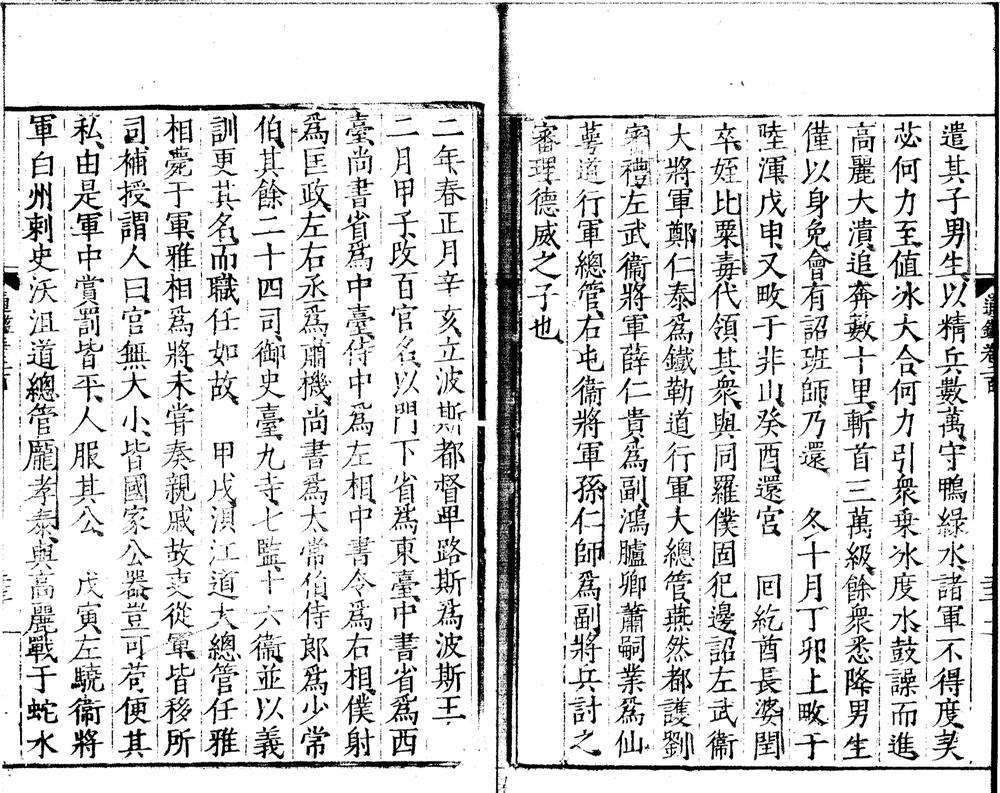 遣其子男生以精兵數萬守鴨綠水諸軍不得度契
苾何力至值冰大合何力引衆乗冰度水鼓譟而進
高麗大潰追奔數十里斬首三萬級餘衆悉降男生
僅以身免會有詔班師乃還　冬十月丁卯上畋于
陸渾戊申又畋于非山癸酉還宮　回紇酋長婆閏
卒姪比粟毒代領其衆與同羅僕固犯邊詔左武衞
大將軍鄭仁泰爲鐵勒道行軍大總管燕然都護劉
審禮左武衞將軍薛仁貴爲副鴻臚卿蕭嗣業爲仙
萼道行軍總管右屯衞將軍孫仁師爲副將兵討之
審理德威之子也
通鑑卷二百
二年春正月辛亥立波斯都督卑路斯爲波斯王
二月甲子改百官名以門下省爲東臺中書省爲西
臺尚書省爲中臺侍中爲左相中書令爲右相僕射
爲匡政左右丞爲肅機尚書爲太常伯侍郎爲少常
伯其餘二十四司御史臺九寺七監十六衞並以義
訓更其名而職任如故　甲戌浿江道大總管任雅
相薨于軍雅相爲將未甞奏親戚故吏從軍皆移所
司補授謂人曰官無大小皆國家公器豈可苟便其
私由是軍中賞罰皆平人服其公　戊寅左驍衞將
軍白州刺史沃沮道總管龐孝泰與高麗戰于蛇水